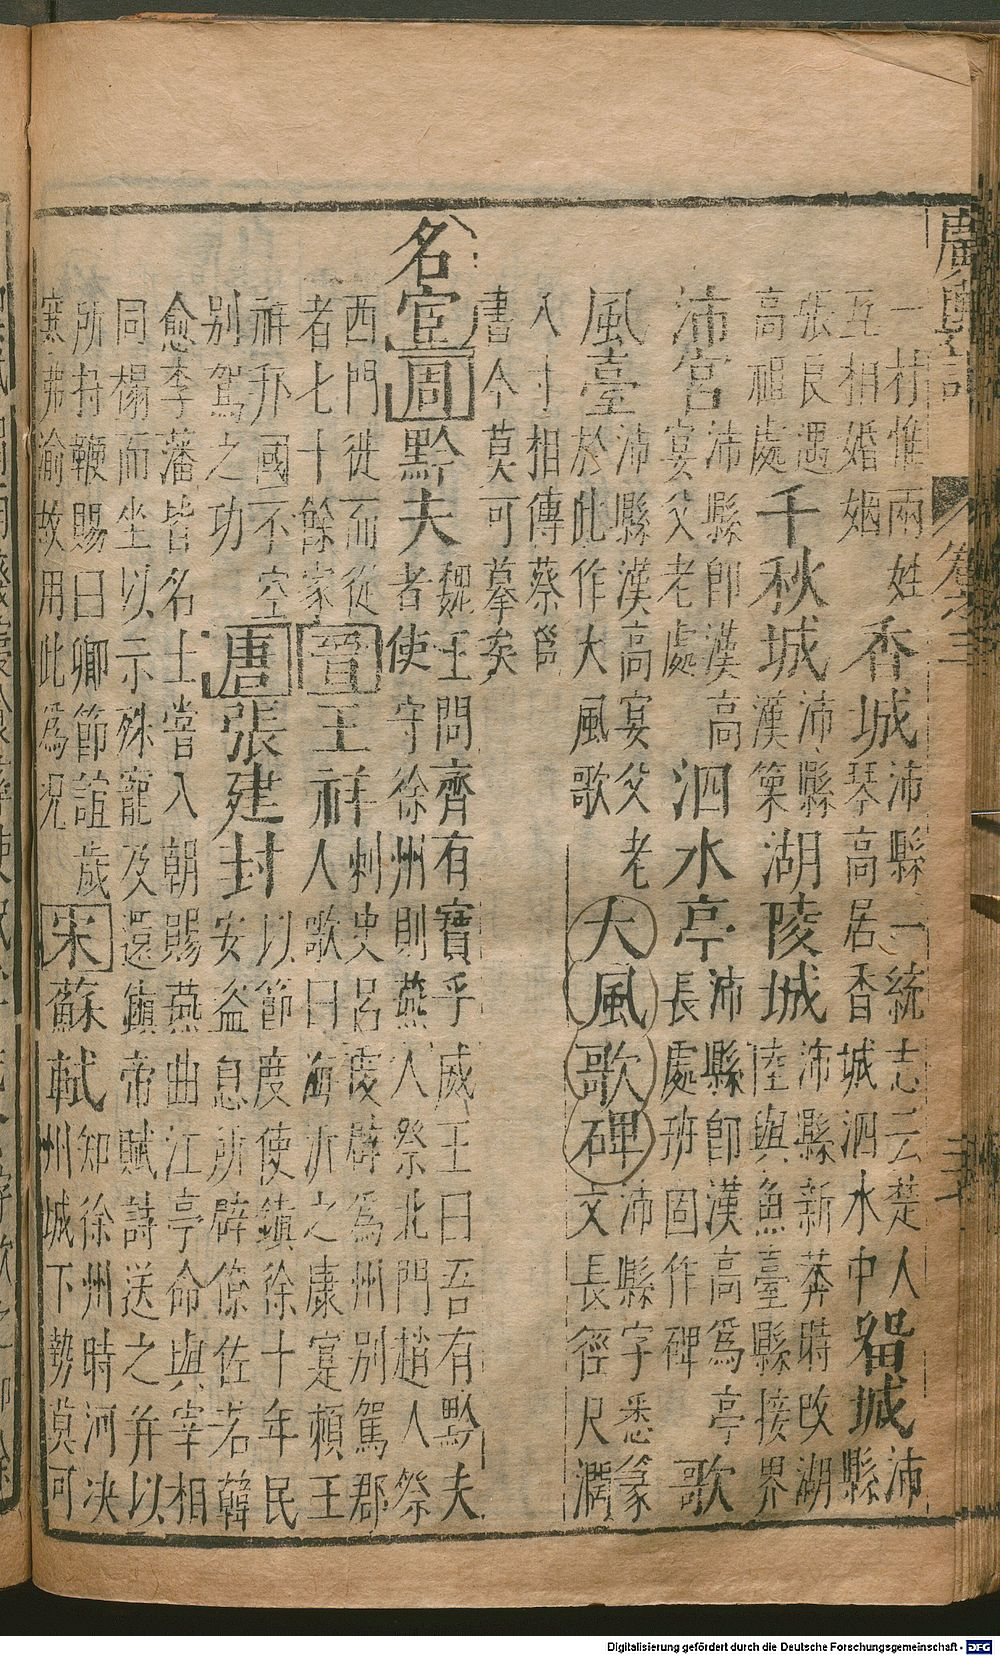 廣輿記 卷之三 三十
一村惟兩姓互相婚姻 香城 沛縣一統志云楚人琴高居香城泗水中 留城 沛縣
張良遇高祖處 千秋城 沛縣漢築 湖陵城 沛縣新莽時改湖陸與魚臺縣接界
沛宮 沛縣即漢高宴父老處 泗水亭 沛縣即漢高為亭長處班固作碑 歌
風臺 沛縣漢高宴父老於此作大風歌 大風歌碑 沛縣字悉篆文長徑尺濶
八寸相傳蔡邕書今莫可摹矣
名宦 周 黔夫 魏王問齊有寶乎威王曰吾有黔夫者使守徐州則燕人祭北門趙人祭
西門徙而從者七十餘家 晉 王祥 刺史呂虔辟為州別駕郡人歌曰海沂之康寔賴王
祥邦國不空別駕之功 唐 張建封 以節度使鎮徐十年民安益息所辟僚佐若韓
愈李藩皆名士嘗入朝賜燕曲江亭命與宰相同榻而坐以示殊寵及還鎮帝賦詩送之并以
所持鞭賜曰卿節誼歲寒弗渝故用此為況 宋 蘇軾 知徐州時河决州城下勢莫可
Digitalisierung gefördert durch die Deutsche Forschungsgemeinschaft - DFG